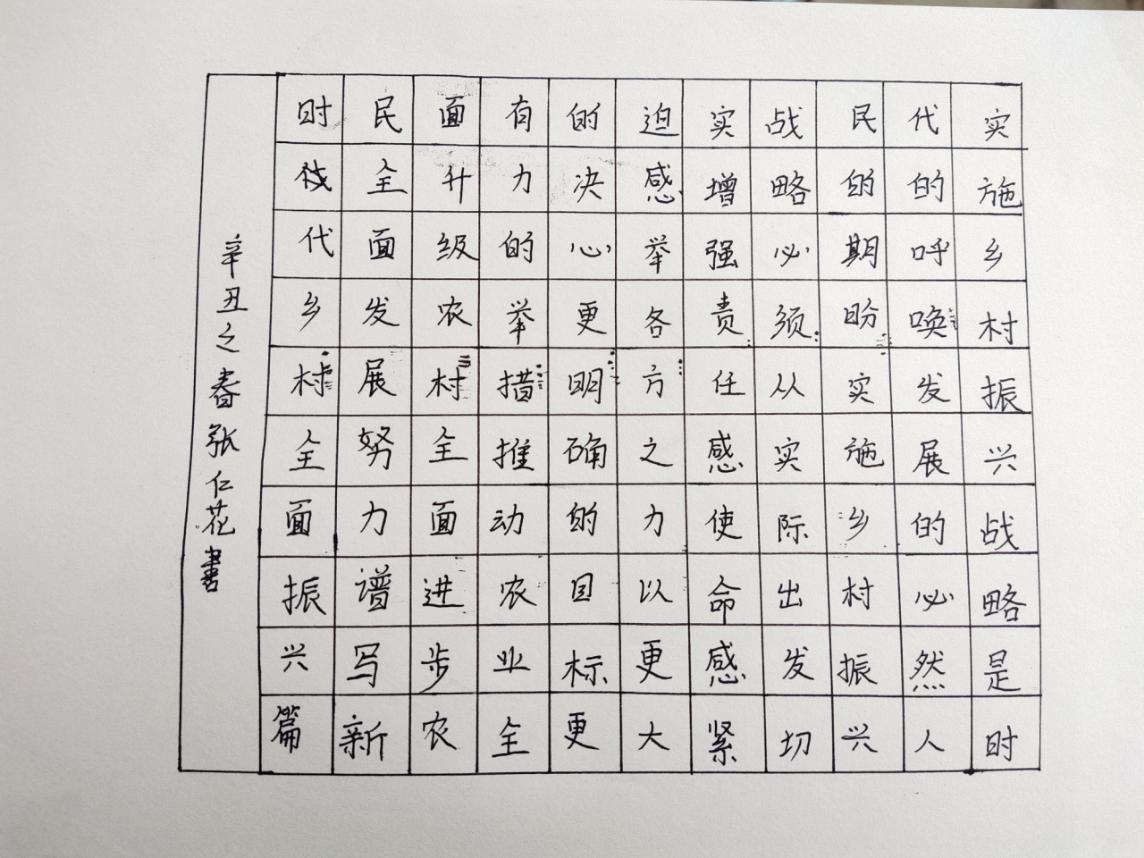 实施乡村振兴战略是时
代的呼唤发展的必然人
民的期盼实施乡村振兴
战略必须从实际出发切
实增强责任感使命感紧
迫感举各方之力以更大
的决心更明确的目标更
有力的举措推动农业全
面升级农村全面进步农
民全面发展努力谱写新
时代乡村全面振兴篇
辛丑之春张仁花書